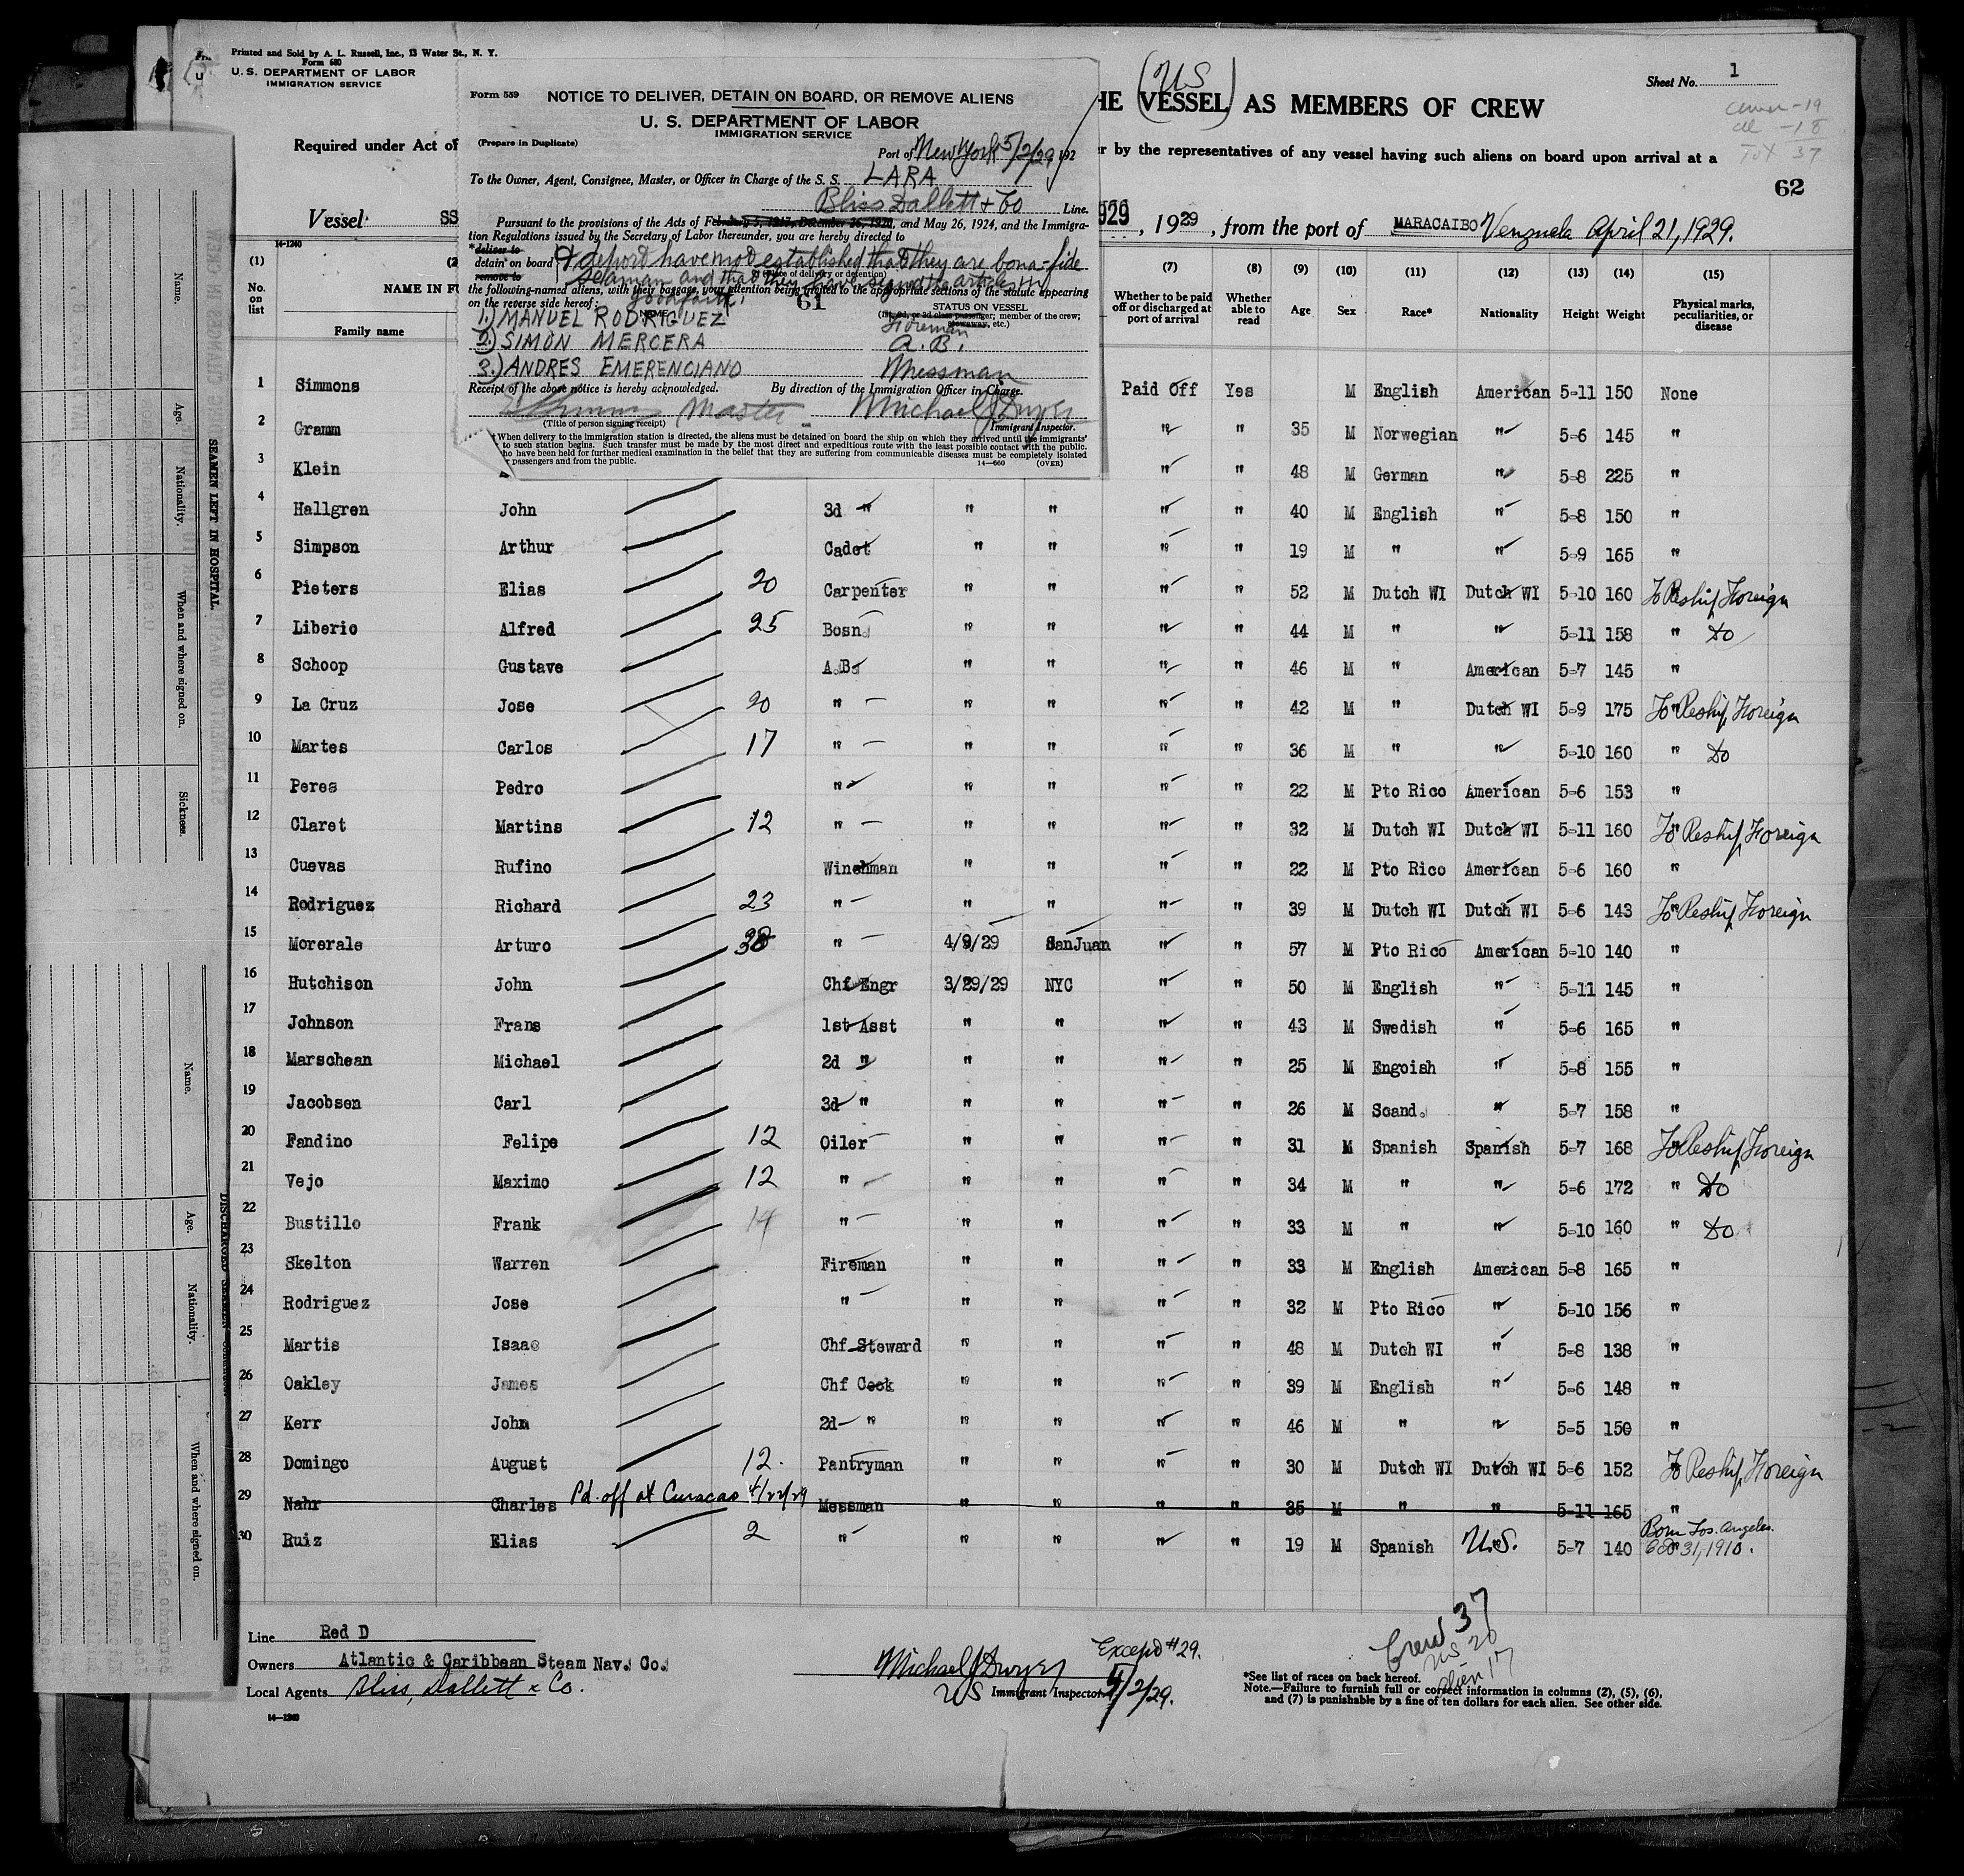 Printed and Sold by A. L. Russell, Inc., 13 Water St., N. Y.
Form 680
U. S. DEPARTMENT OF LABOR
IMMIGRATION SERVICE
Required under Act of
Vessel SS
14-1240
Form 559
NOTICE TO DELIVER, DETAIN ON BOARD, OR REMOVE ALIENS
U. S. DEPARTMENT OF LABOR
IMMIGRATION SERVICE
(Prepare in Duplicate)
Port of New York 5/2/29 192
To the Owner, Agent, Consignee, Master, or Officer in Charge of the S. S. LARA
Bliss Dallett & Co Line.
Pursuant to the provisions of the Acts of February 5, 1917, December 26, 1920, and May 26, 1924, and the Immigra-
tion Regulations issued by the Secretary of Labor thereunder, you are hereby directed to
*deliver to
detain on board & deport have not established that they are bona-fide
remove to (Place of delivery or detention)
seaman and that they have signed the articles in
the following-named aliens, with their baggage, your attention being invited to the appropriate sections of the statute appearing
on the reverse side hereof: good faith. 61
NAME STATUS ON VESSEL
(1st, 2d, or 3d class passenger; member of the crew; stowaway, etc.)
1.) MANUEL RODRIGUEZ Fireman
2.) SIMON MERCERA A. B.
3.) ANDRES EMERENCIANO Messman
Receipt of the above notice is hereby acknowledged. By direction of the Immigration Officer in Charge.
Master Michael J Dwyer
(Title of person signing receipt) Immigrant Inspector.
When delivery to the immigration station is directed, the aliens must be detained on board the ship on which they arrived until the immigrants'
to such station begins. Such transfer must be made by the most direct and expeditious route with the least possible contact with the public.
ho have been held for further medical examination in the belief that they are suffering from communicable diseases must be completely isolated
r passengers and from the public. 14-660 (OVER)
(US)
HE VESSEL AS MEMBERS OF CREW
Sheet No. 1
r by the representatives of any vessel having such aliens on board upon arrival at a
Tot 37
62
929, 1929, from the port of MARACAIBO Venzuela April 21, 1929.
(1) (2 (7) (8) (9) (10) (11) (12) (13) (14) (15)
No. on list NAME IN FU Family name Whether to be paid off or discharged at port of arrival Whether able to read Age Sex Race* Nationality Height Weight Physical marks, peculiarities, or disease
1 Simmons Paid Off Yes M English American 5-11 150 None
2 Gramm " " 35 M Norwegian " 5-6 145 "
3 Klein " " 48 M German " 5-8 225 "
4 Hallgren John 3d " " " " " 40 M English " 5-8 150 "
5 Simpson Arthur Cadet " " " " 19 M " " 5-9 165 "
6 Pieters Elias 20 Carpenter " " " " 52 M Dutch WI Dutch WI 5-10 160 To Reship Foreign
7 Liberio Alfred 25 Bosn. " " " " 44 M " " 5-11 158 " Do
8 Schoop Gustave A.B. " " " " 46 M " American 5-7 145 "
9 La Cruz Jose 20 " " " " " 42 M " Dutch WI 5-9 175 " To Reship Foreign
10 Martes Carlos 17 " " " " " 36 M " " 5-10 160 " Do
11 Peres Pedro " " " " " 22 M Pto Rico American 5-6 153 "
12 Claret Martins 12 " " " " " 32 M Dutch WI Dutch WI 5-11 160 " To Reship Foreign
13 Cuevas Rufino Winchman " " " " 22 M Pto Rico American 5-6 160 "
14 Rodriguez Richard 23 " " " " " 39 M Dutch WI Dutch WI 5-6 143 " To Reship Foreign
15 Morerale Arturo 38 " 4/9/29 SanJuan " " 57 M Pto Rico American 5-10 140 "
16 Hutchison John Chf Engr 3/29/29 NYC " " 50 M English " 5-11 145 "
17 Johnson Frans 1st Asst " " " " 43 M Swedish " 5-6 165 "
18 Marschean Michael 2d " " " " " 25 M Engoish " 5-8 155 "
19 Jacobsen Carl 3d " " " " " 26 M Scand. " 5-7 158 "
20 Fandino Felipe 12 Oiler " " " " 31 M Spanish Spanish 5-7 168 " To Reship Foreign
21 Vejo Maximo 12 " " " " " 34 M " " 5-6 172 " Do
22 Bustillo Frank 14 " " " " " 33 M " " 5-10 160 " Do
23 Skelton Warren Fireman " " " " 33 M English American 5-8 165 "
24 Rodriguez Jose " " " " " 32 M Pto Rico " 5-10 156 "
25 Martis Isaac Chf Steward " " " " 48 M Dutch WI " 5-8 138 "
26 Oakley James Chf Cook " " " " 39 M English " 5-6 148 "
27 Kerr John 2d " " " " " 46 M " " 5-5 150 "
28 Domingo August 12. Pantryman " " " " 30 M Dutch WI Dutch WI 5-6 152 " To Reship Foreign
29 Nahr Charles Pd. off at Curacao 4/22/29 Messman " " " " 35 M " " 5-11 165 "
30 Ruiz Elias 2 " " " " " 19 M Spanish U.S. 5-7 140 Born Los. Angeles. 31, 1910.
Line Red D
Owners Atlantic & Caribbean Steam Nav. Co.
Local Agents Bliss, Dallett & Co.
14-1240
Michael J Dwyer Except #29.
US Immigrant Inspector. 5/2/29.
Crew 37
US 20
Alien 17
*See list of races on back hereof.
Note.—Failure to furnish full or correct information in columns (2), (5), (6),
and (7) is punishable by a fine of ten dollars for each alien. See other side.
SEAMEN LEFT IN HOSPITAL.
Name. Age. Nationality. When and where signed on. Sickness.
Name. Age. Nationality. When and where signed on.